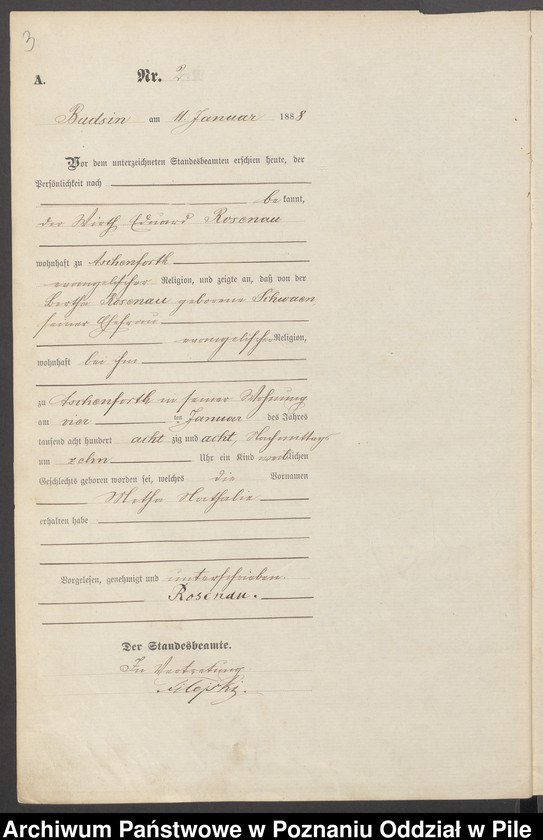 3
A.
Nr. 2
Budsin am 11. Januar 1888
Vor dem unterzeichneten Standesbeamten erschien heute, der
Persönlichkeit nach
bekannt,
der Wirth Eduard Rosenau
wohnhaft zu Aschenforth
evangelischer Religion, und zeigte an, daß von der
Bertha Rosenau geborene Schwaen
seiner Ehefrau
evangelischer Religion,
wohnhaft bei ihm
zu Aschenforth in seiner Wohnung
am vier ten Januar des Jahres
tausend acht hundert acht zig und acht, Nachmittags
um zehn Uhr ein Kind weiblichen
Geschlechts geboren worden sei, welches die Vornamen
Metha Nathalie
erhalten habe
Vorgelesen, genehmigt und unterschrieben.
Rosenau.
Der Standesbeamte.
In Vertretung
Archiwum Państwowe w Poznaniu Oddział w Pile